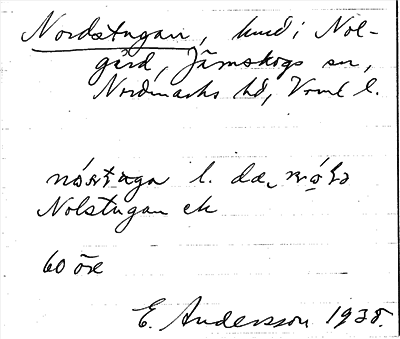 Nordstugan, hmd i Nol-
gård, Järnskogs sn,
Nordmarks hd, Vrml l.
l. da
Nolstugan ek
60 öre
E. Andersson 1938.